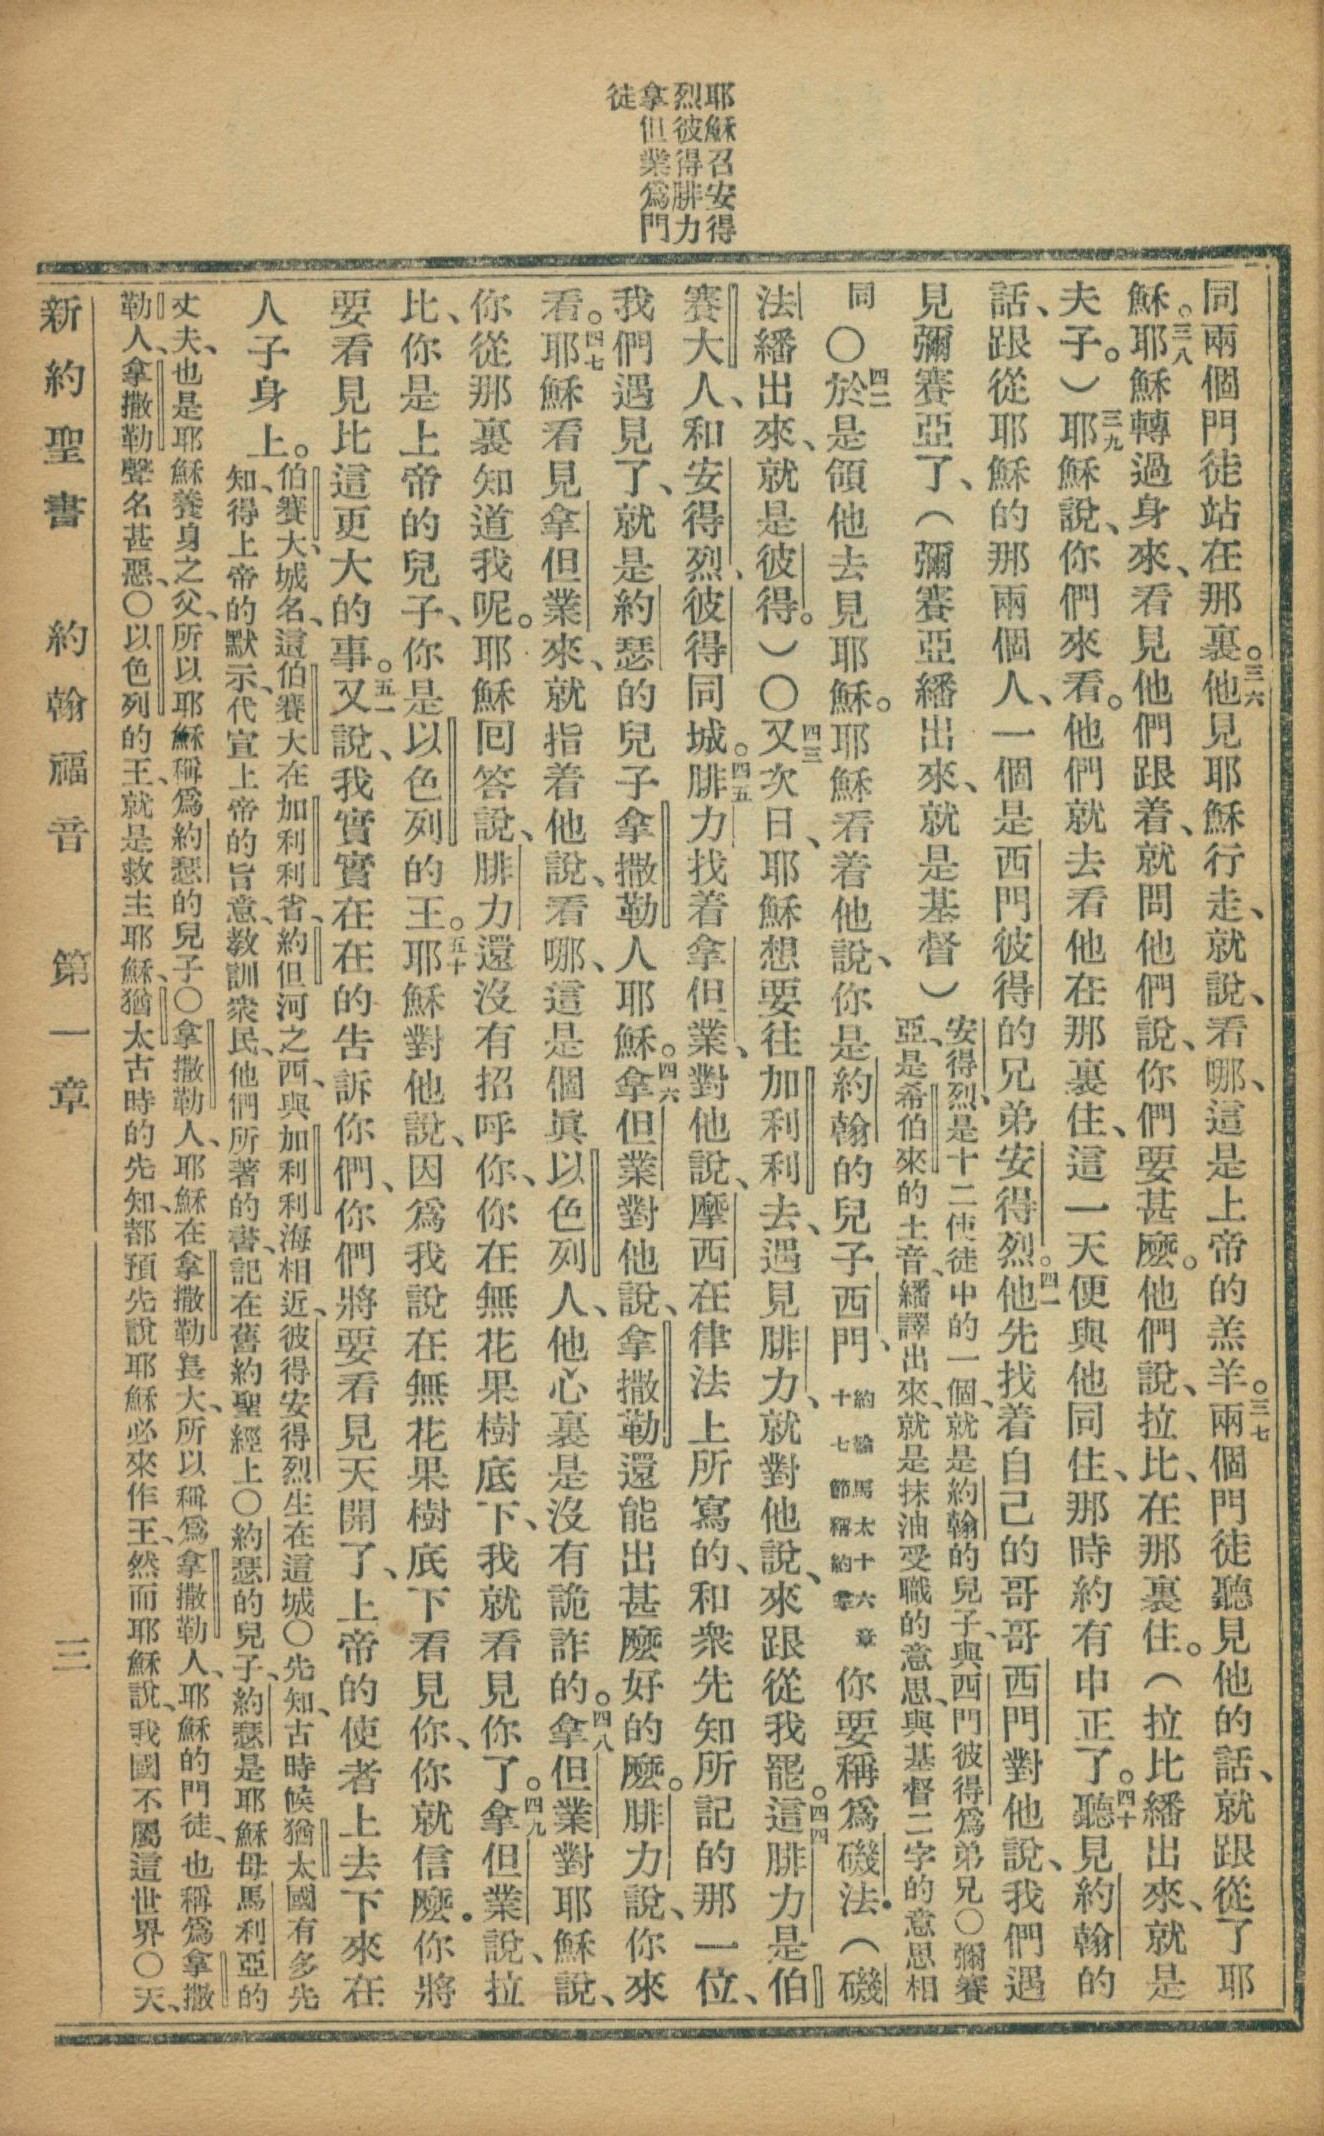 耶穌召安得
烈彼得腓力
拿但業爲門
徒
同兩個門徒站在那裏。三六他見耶穌行走、就說、看哪、這是上帝的羔羊。三七兩個門徒聽見他的話、就跟從了耶
穌。三八耶穌轉過身來、看見他們跟着、就問他們說、你們要甚麼。他們說、拉比、在那裏住。（拉比繙出來、就是
夫子。）三九耶穌說、你們來看。他們就去看他在那裏住、這一天便與他同住、那時約有申正了。四十聽見約翰的
話、跟從耶穌的那兩個人、一個是西門彼得的兄弟安得烈。四一他先找着自己的哥哥西門對他說、我們遇
見彌賽亞了、（彌賽亞繙出來、就是基督）
安得烈、是十二使徒中的一個、就是約翰的兒子、與西門彼得爲弟兄〇彌賽
亞、是希伯來的土音、繙譯出來、就是抹油受職的意思、與基督二字的意思相
同
〇四二於是領他去見耶穌。耶穌看着他說、你是約翰的兒子西門、
約翰馬太十六章
十七節稱約拿
你要稱爲磯法。（磯
法繙出來、就是彼得。）〇四三又次日、耶穌想要往加利利去、遇見腓力、就對他說、來跟從我罷。四四這腓力是伯
賽大人、和安得烈、彼得同城。四五腓力找着拿但業、對他說、摩西在律法上所寫的、和衆先知所記的那一位、
我們遇見了、就是約瑟的兒子拿撒勒人耶穌。四六拿但業對他說、拿撒勒還能出甚麼好的麼。腓力說、你來
看。四七耶穌看見拿但業來、就指着他說、看哪、這是個眞以色列人、他心裏是沒有詭詐的。四八拿但業對耶穌說、
你從那裏知道我呢。耶穌回答說、腓力還沒有招呼你、你在無花果樹底下、我就看見你了。四九拿但業說、拉
比、你是上帝的兒子、你是以色列的王。五十耶穌對他說、因爲我說在無花果樹底下看見你、你就信麼。你將
要看見比這更大的事。五一又說、我實實在在的告訴你們、你們將要看見天開了、上帝的使者上去下來在
人子身上。
伯賽大、城名、這伯賽大在加利利省、約但河之西、與加利利海相近、彼得安得烈生在這城〇先知、古時候猶太國有多先
知、得上帝的默示、代宣上帝的旨意、教訓衆民、他們所著的書、記在舊約聖經上〇約瑟的兒子、約瑟是耶穌母馬利亞的
丈夫、也是耶穌養身之父、所以耶穌稱爲約瑟的兒子〇拿撒勒人、耶穌在拿撒勒長大、所以稱爲拿撒勒人、耶穌的門徒、也稱爲拿撒
勒人、拿撒勒聲名甚惡、〇以色列的王、就是救主耶穌、猶太古時的先知、都預先說耶穌必來作王、然而耶穌說、我國不屬這世界〇天、
新約聖書　約翰福音　第一章　三